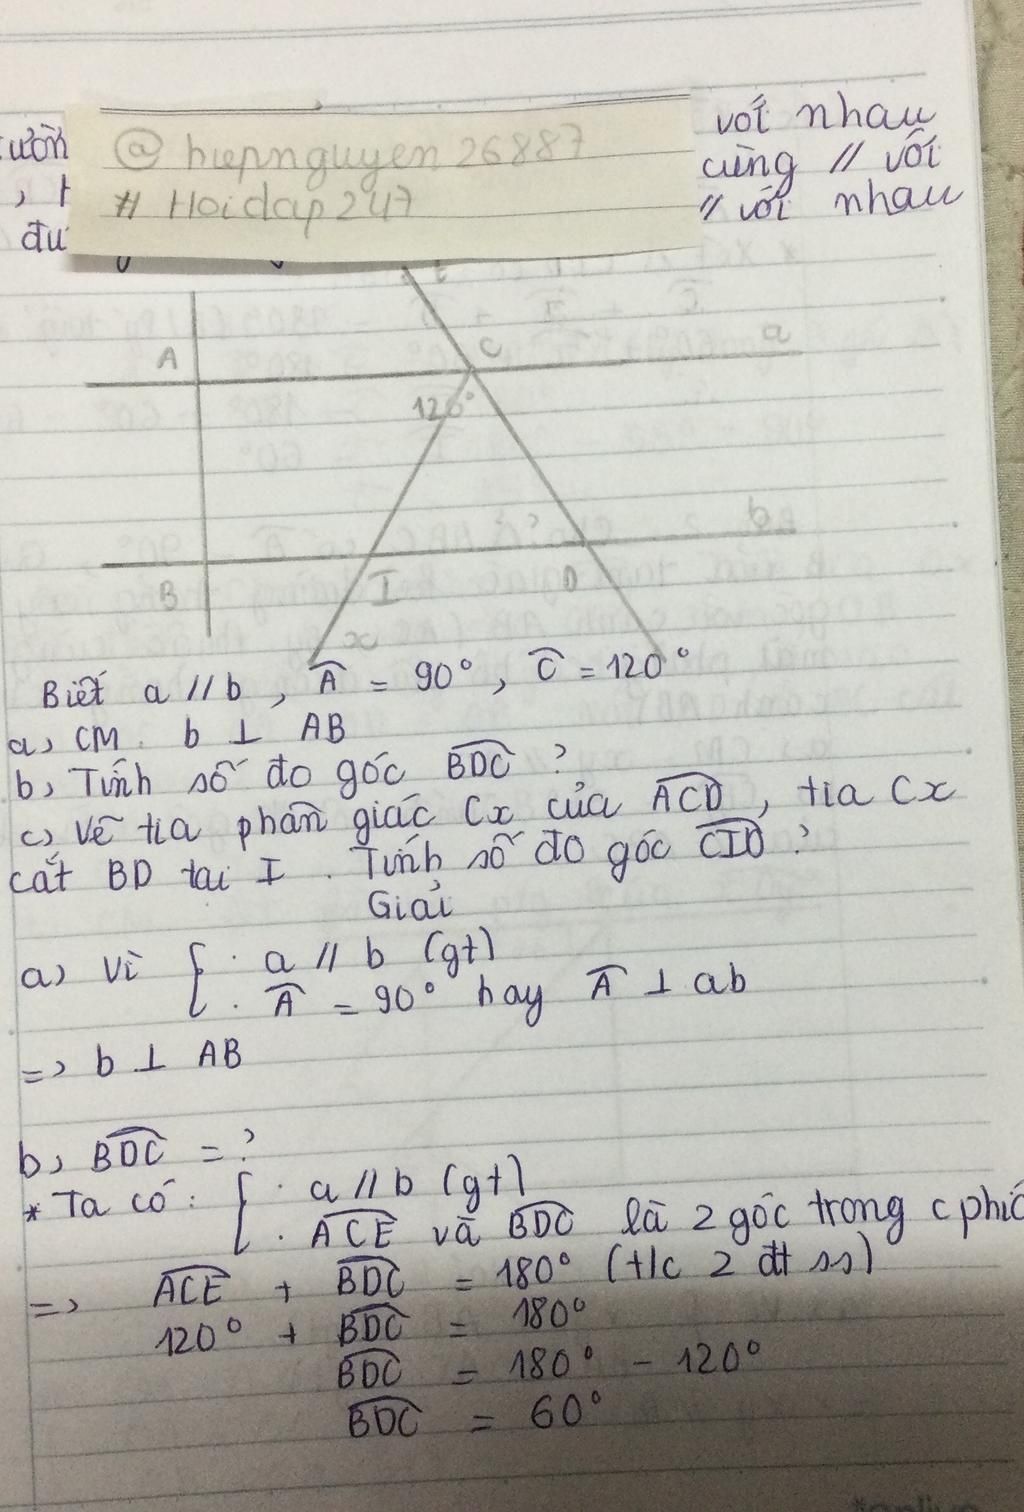 với nhau
@ hiepnguyen 26887
cùng // với
# Hoidap247
// với nhau
A
C
a
120°
?
b
B
I
D
x
Biết a // b , Â = 90° , Ĉ = 120°
a, CM. b ⊥ AB
b, Tính số đo góc BDC ?
c, Vẽ tia phân giác Cx của ACD , tia Cx
cắt BD tại I . Tính số đo góc CID ?
Giải
a) Vì { . a // b (gt)
. Â = 90° hay Â ⊥ ab
=> b ⊥ AB
b, BDC = ?
* Ta có : { . a // b (gt)
. ACE và BDC là 2 góc trong c phí
=> ACE + BDC = 180° (t/c 2 đt ss)
120° + BDC = 180°
BDC = 180° - 120°
BDC = 60°